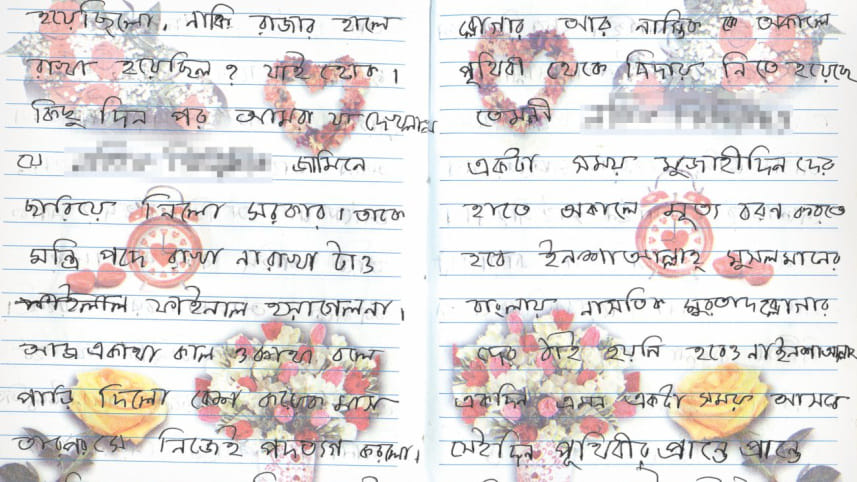 হয়েছিলো, নাকি রাজার হালে
রাখা হয়েছিল? যাই হোক।
কিছু দিন পর আমরা যা দেখলাম
যে জামিনে
ছারিয়ে নিলো সরকার। তাকে
মন্ত্রি পদে রাখা নারাখা টাও
ফাইনাল হলাগেলনা।
আজ একথা কাল ওকথা বলে
পারি দিলো বেশ কয়েক মাস
তারপর সে নিজেই পদত্যাগ করলো।
ব্লোগার আর নাস্তিক কে অকালে
পৃথিবী থেকে বিদায় নিতে হয়েছে
তেমনী
একটা সময় মুজাহীদিন দের
হাতে অকালে মৃত্যু বরন করতে
হবে ইনশাআল্লাহ্ মুসলমানের
বাংলায় নাসতিক মুরতাদ ব্লোগার
দের ঠাই হয়নি হবেও না ইনশাআল্লাহ
একদিন এমন একটা সময় আসবে
সেই দিন পৃথিবীর প্রান্তে প্রান্তে